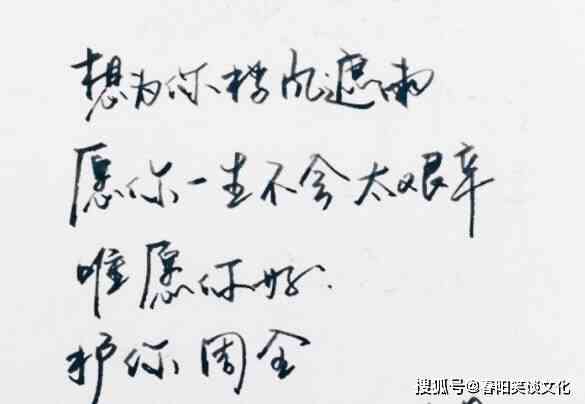 想为你挡风遮雨
愿你一生不会太艰辛
唯愿你好
护你周全
搜狐号@春阳笑谈文化